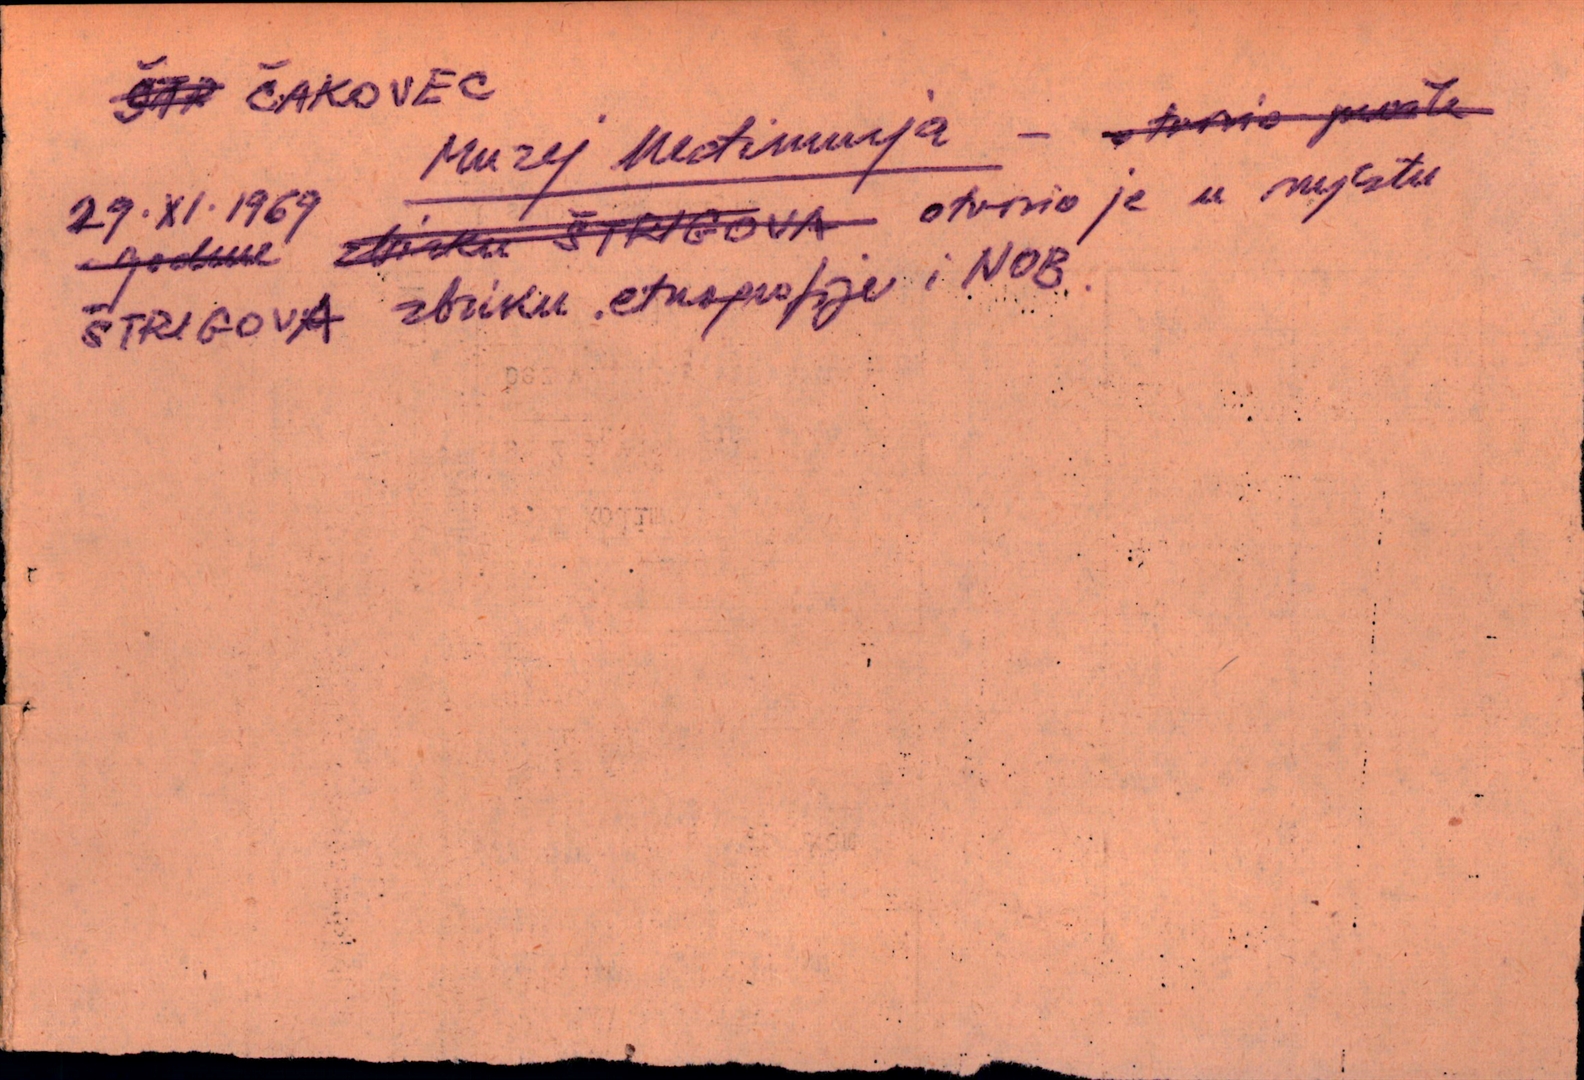 ŠTR ČAKOVEC
Muzej Međimurja – otvorio
29. XI. 1969 zbirku ŠTRIGOVA otvorio je u mjestu
godine
ŠTRIGOVA zbirku etnografije i NOB.